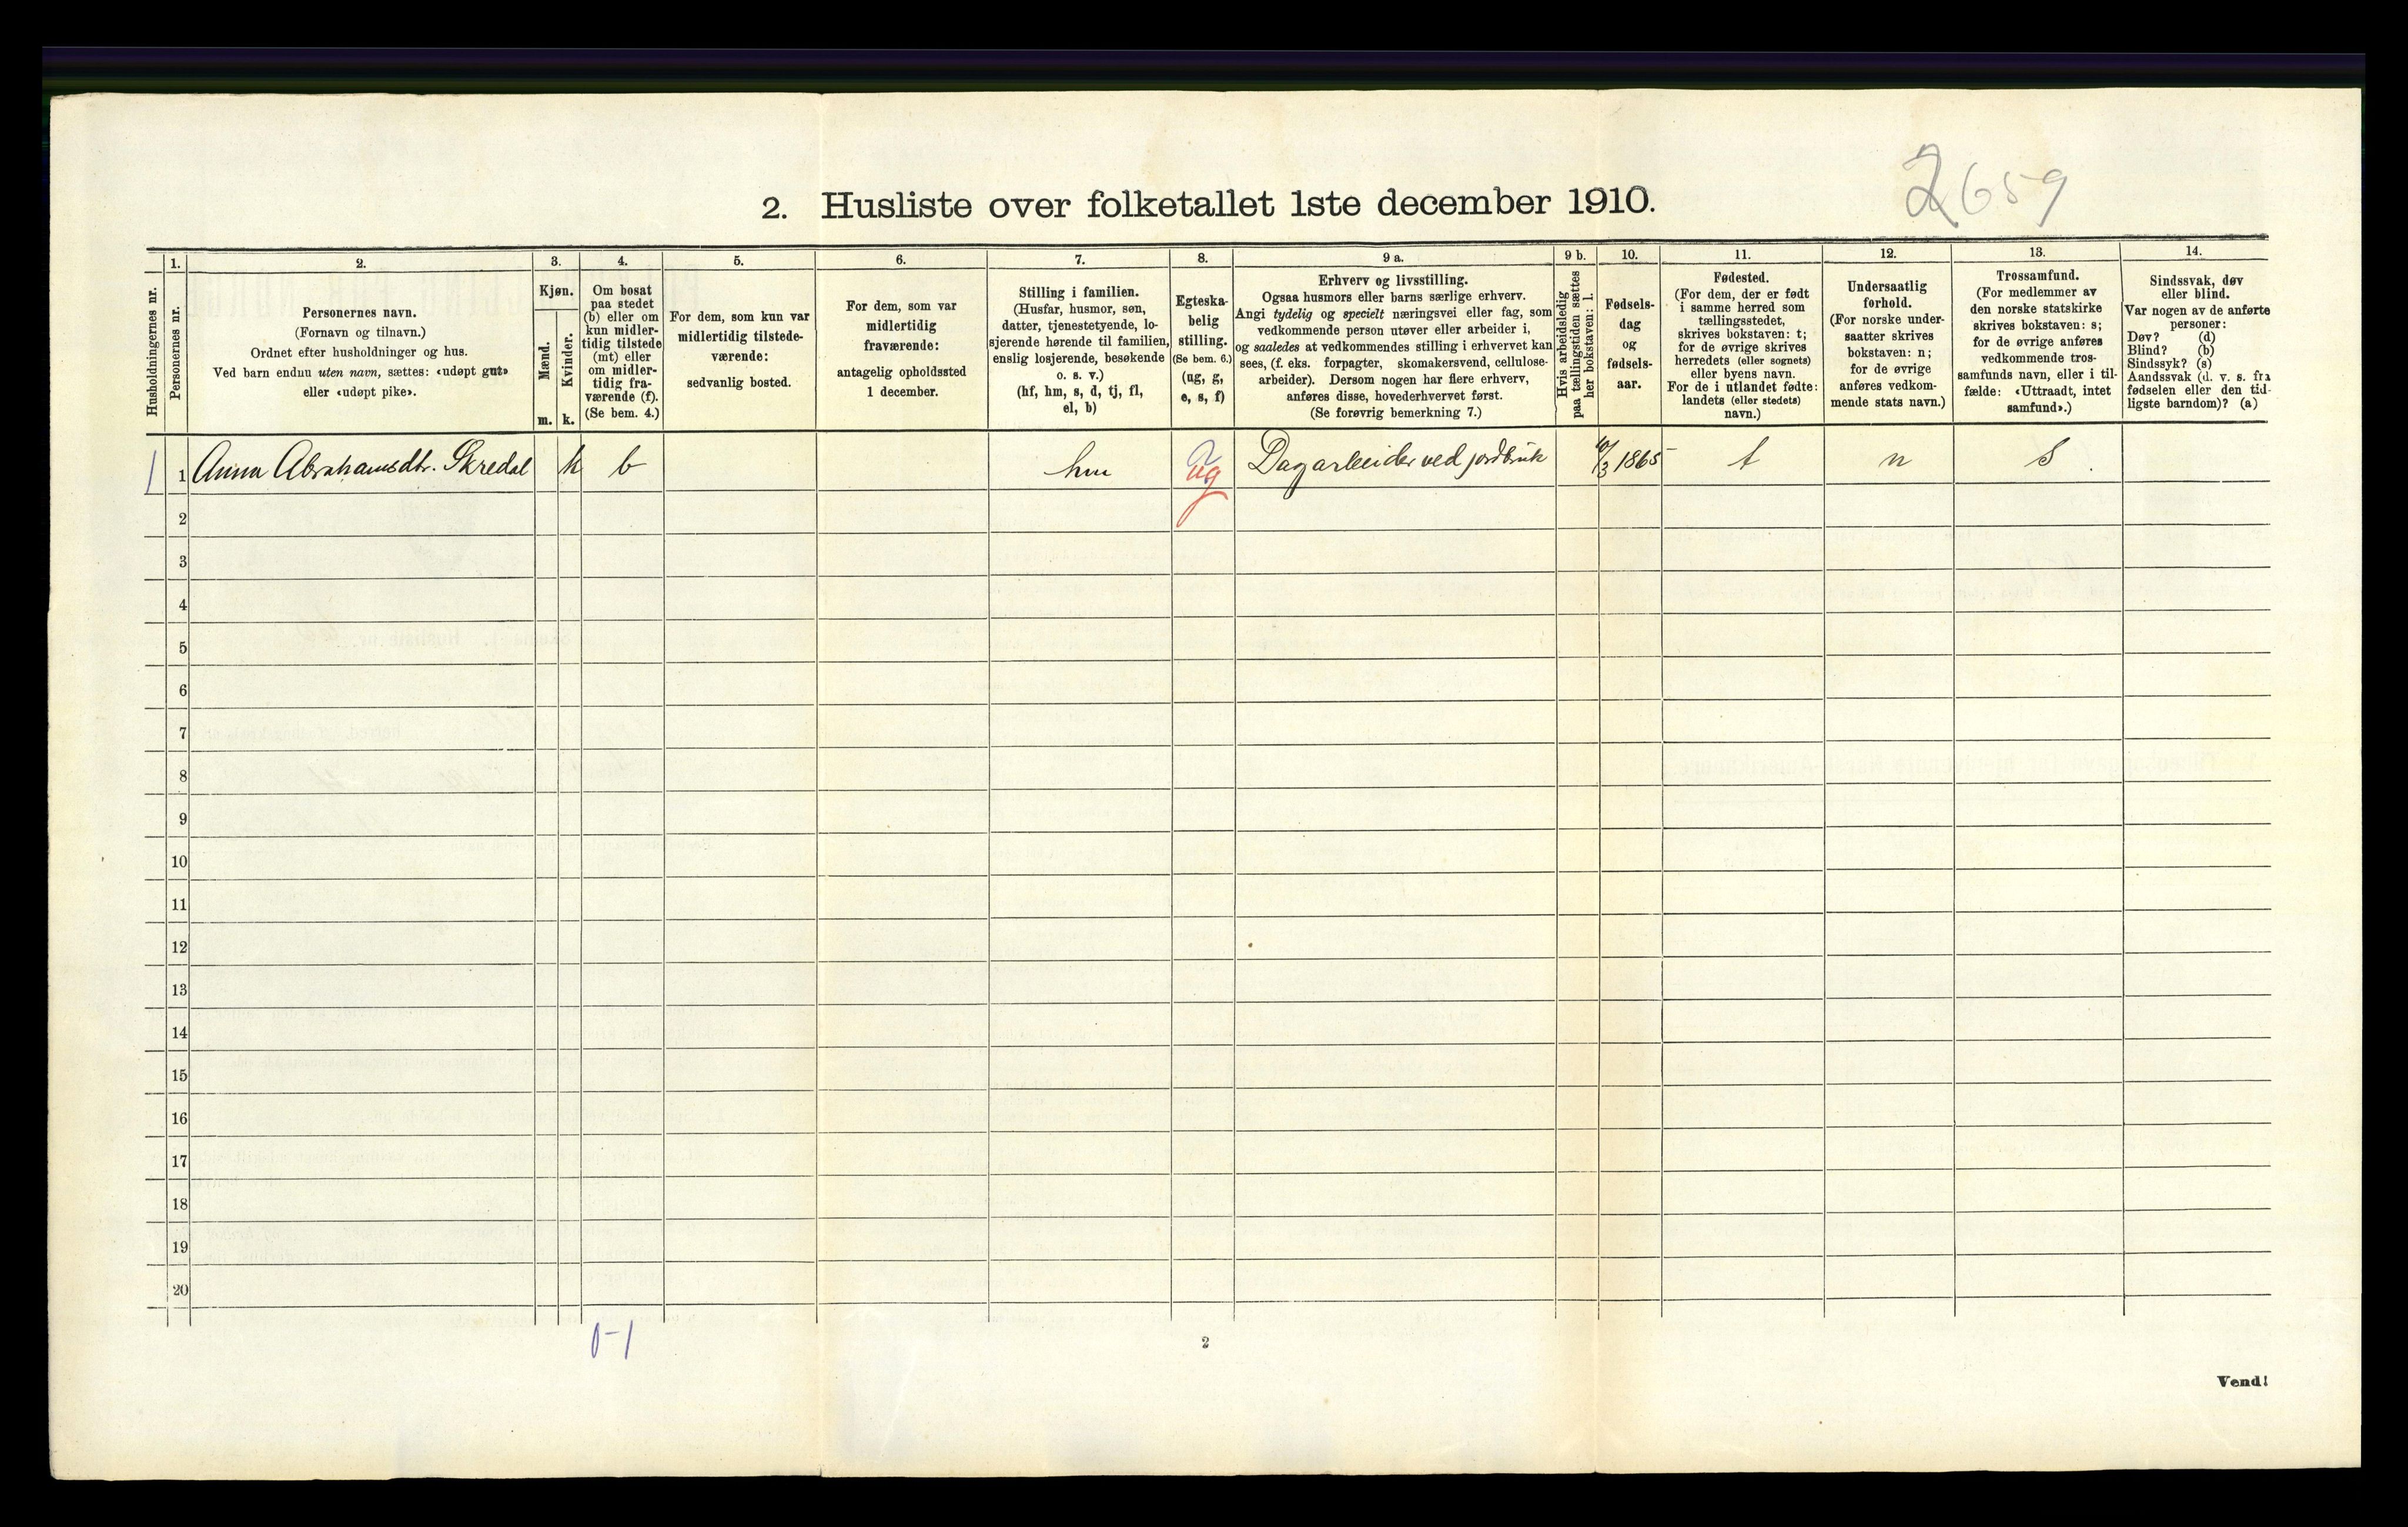 2659
2. Husliste over folketallet 1ste december 1910.
Husholdningernes nr.
1.
Personernes nr.
2.
Personernes navn.
(Fornavn og tilnavn.)
Ordnet efter husholdninger og hus.
Ved barn endnu uten navn, sættes: «udøpt gut»
eller «udøpt pike».
3.
Kjøn.
Mænd.
Kvinder.
m. k.
4.
Om bosat
paa stedet
(b) eller om
kun midler-
tidig tilstede
(mt) eller
om midler-
tidig fra-
værende (f).
(Se bem. 4.)
5.
For dem, som kun var
midlertidig tilstede-
værende:
sedvanlig bosted.
6.
For dem, som var
midlertidig
fraværende:
antagelig opholdssted
1 december.
7.
Stilling i familien.
(Husfar, husmor, søn,
datter, tjenestetyende, lo-
sjerende hørende til familien,
enslig losjerende, besøkende
o. s. v.)
(hf, hm, s, d, tj, fl,
el, b)
8.
Egteska-
belig
stilling.
(Se bem. 6.)
(ug, g,
e, s, f)
9 a.
Erhverv og livsstilling.
Ogsaa husmors eller barns særlige erhverv.
Angi tydelig og specielt næringsvei eller fag, som
vedkommende person utøver eller arbeider i,
og saaledes at vedkommendes stilling i erhvervet kan
sees, (f. eks. forpagter, skomakersvend, cellulose-
arbeider). Dersom nogen har flere erhverv,
anføres disse, hovederhvervet først.
(Se forøvrig bemerkning 7.)
9 b.
Hvis arbeidsledig
paa tællingstiden sættes
her bokstaven: l.
10.
Fødsels-
dag
og
fødsels-
aar.
11.
Fødested.
(For dem, der er født
i samme herred som
tællingsstedet,
skrives bokstaven: t;
for de øvrige skrives
herredets (eller sognets)
eller byens navn.
For de i utlandet fødte:
landets (eller stedets)
navn.)
12.
Undersaatlig
forhold.
(For norske under-
saatter skrives
bokstaven: n;
for de øvrige
anføres vedkom-
mende stats navn.)
13.
Trossamfund.
(For medlemmer av
den norske statskirke
skrives bokstaven: s;
for de øvrige anføres
vedkommende tros-
samfunds navn, eller i til-
fælde: «Uttraadt, intet
samfund».)
14.
Sindssvak, døv
eller blind.
Var nogen av de anførte
personer:
Døv? (d)
Blind? (b)
Sindssyk? (s)
Aandssvak (d. v. s. fra
fødselen eller den tid-
ligste barndom)? (a)
1 1 Anna Abrahamsdtr. Skredal k b hm ug Dagarbeider ved jordbruk 10/3 1865 t n s
2
3
4
5
6
7
8
9
10
11
12
13
14
15
16
17
18
19
20
0-1
2
Vend!